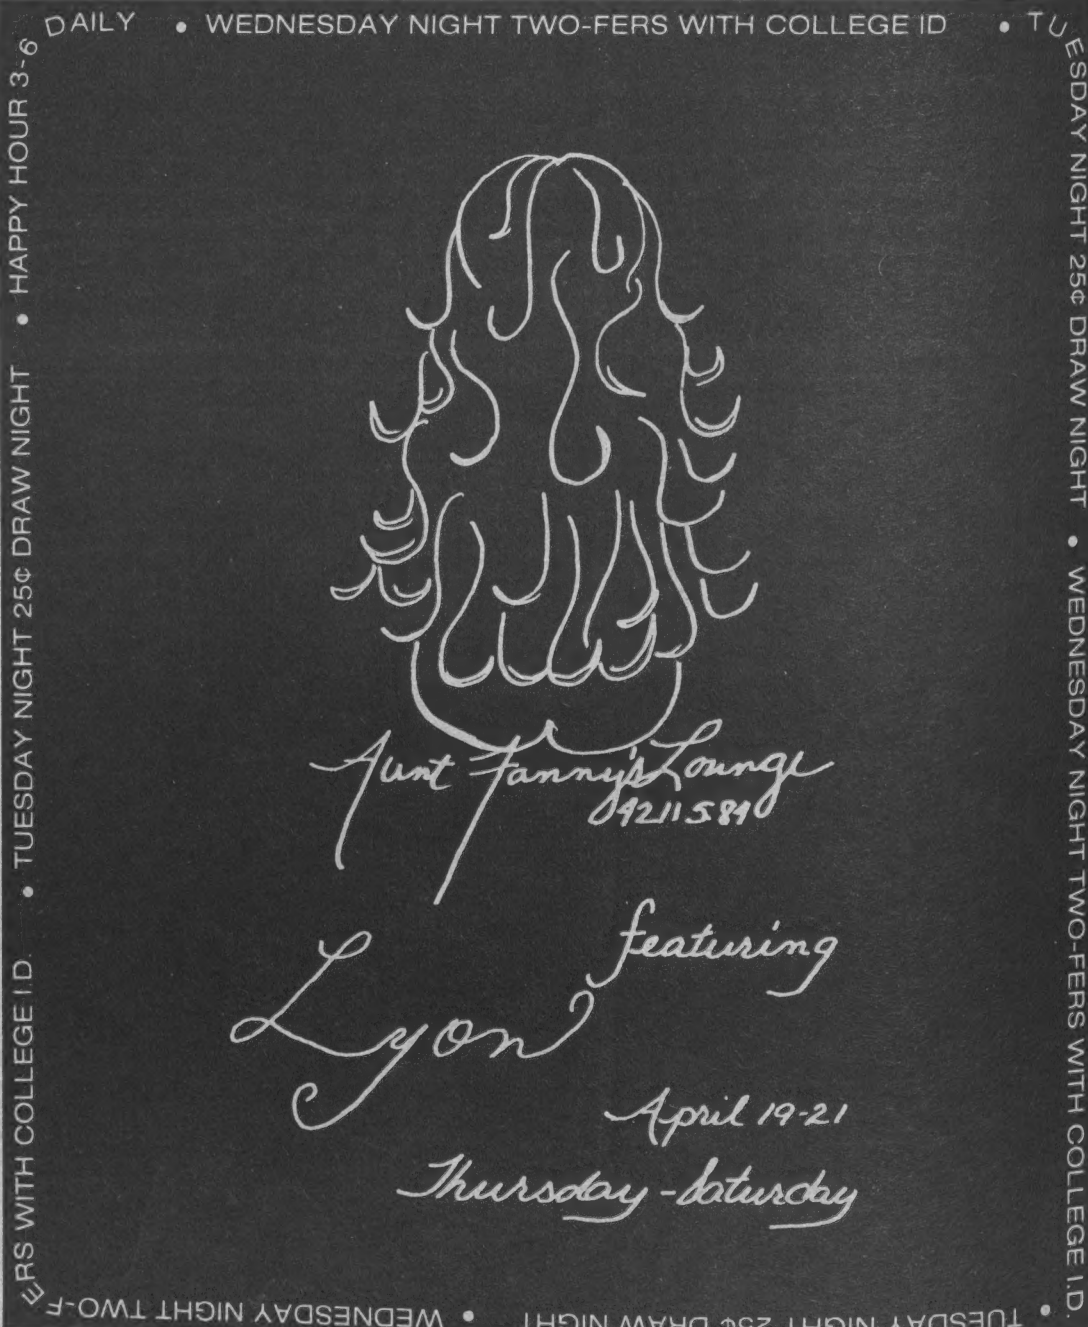 DAILY • WEDNESDAY NIGHT TWO-FERS WITH COLLEGE ID • TUESDAY NIGHT 25¢ DRAW NIGHT • WEDNESDAY NIGHT TWO-FERS WITH COLLEGE I.D. •
TUESDAY NIGHT 25¢ DRAW NIGHT • WEDNESDAY NIGHT TWO-FERS WITH COLLEGE I.D. • TUESDAY NIGHT 25¢ DRAW NIGHT • HAPPY HOUR 3-6
Aunt Fanny's Lounge
featuring
Lyon
April 19-21
Thursday - Saturday